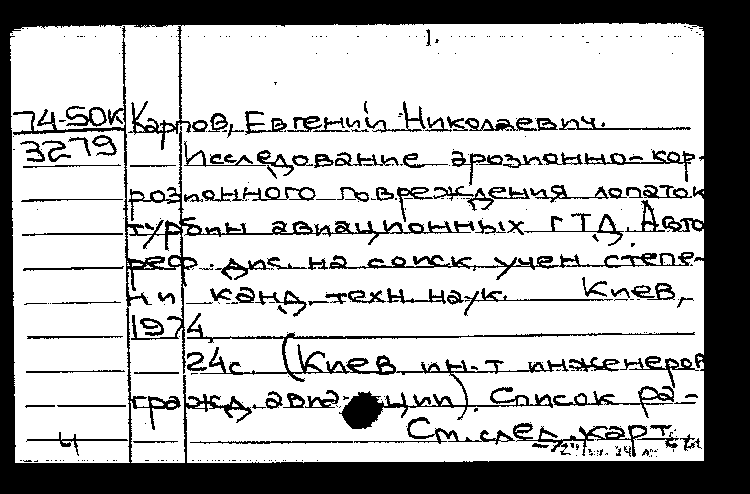 1.
74-50К Карпов, Евгений Николаевич.
3279 Исследование эрозионно-кор-
розионного повреждения лопаток
турбин авиационных ГТД. Авто
реф. дис. на соиск. учен. степе-
ни канд. техн. наук. Киев,
1974.
24с. (Киев. ин-т инженеров
гражд. авиации). Список ра-
См. след. карт.
4